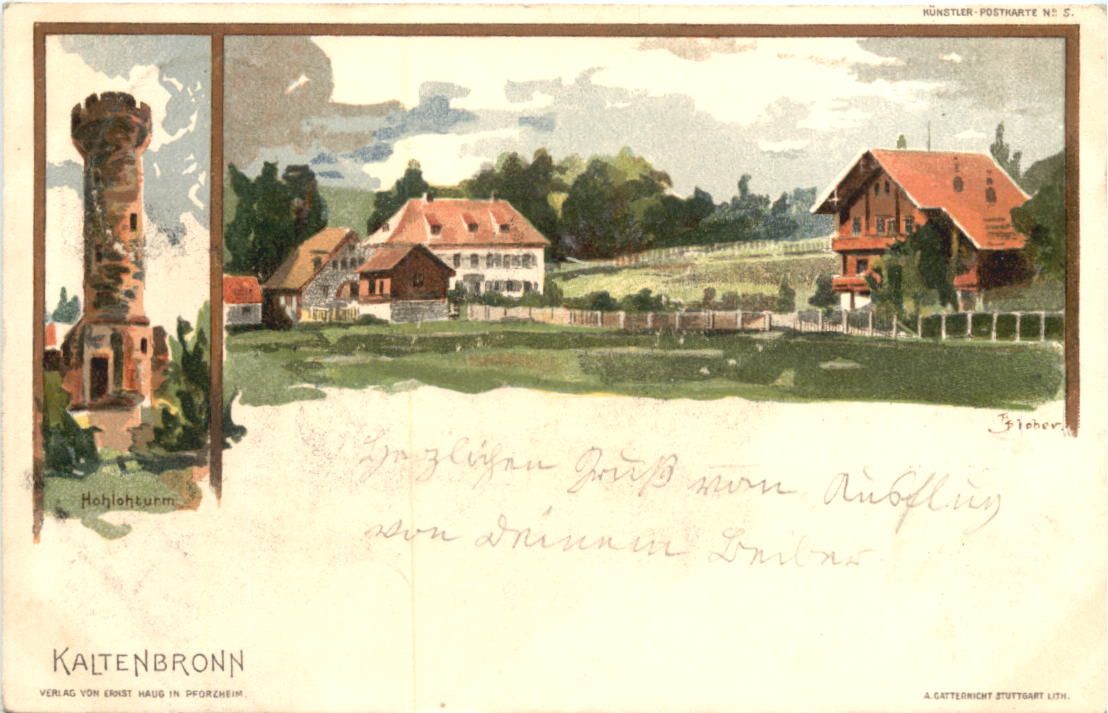 KÜNSTLER-POSTKARTE No 5.
Hohlohturm
Herzlichen Gruß vom Ausflug
von Deinem
KALTENBRONN
VERLAG VON ERNST HAUG IN PFORZHEIM.
A. GATTERNICHT STUTTGART LITH.